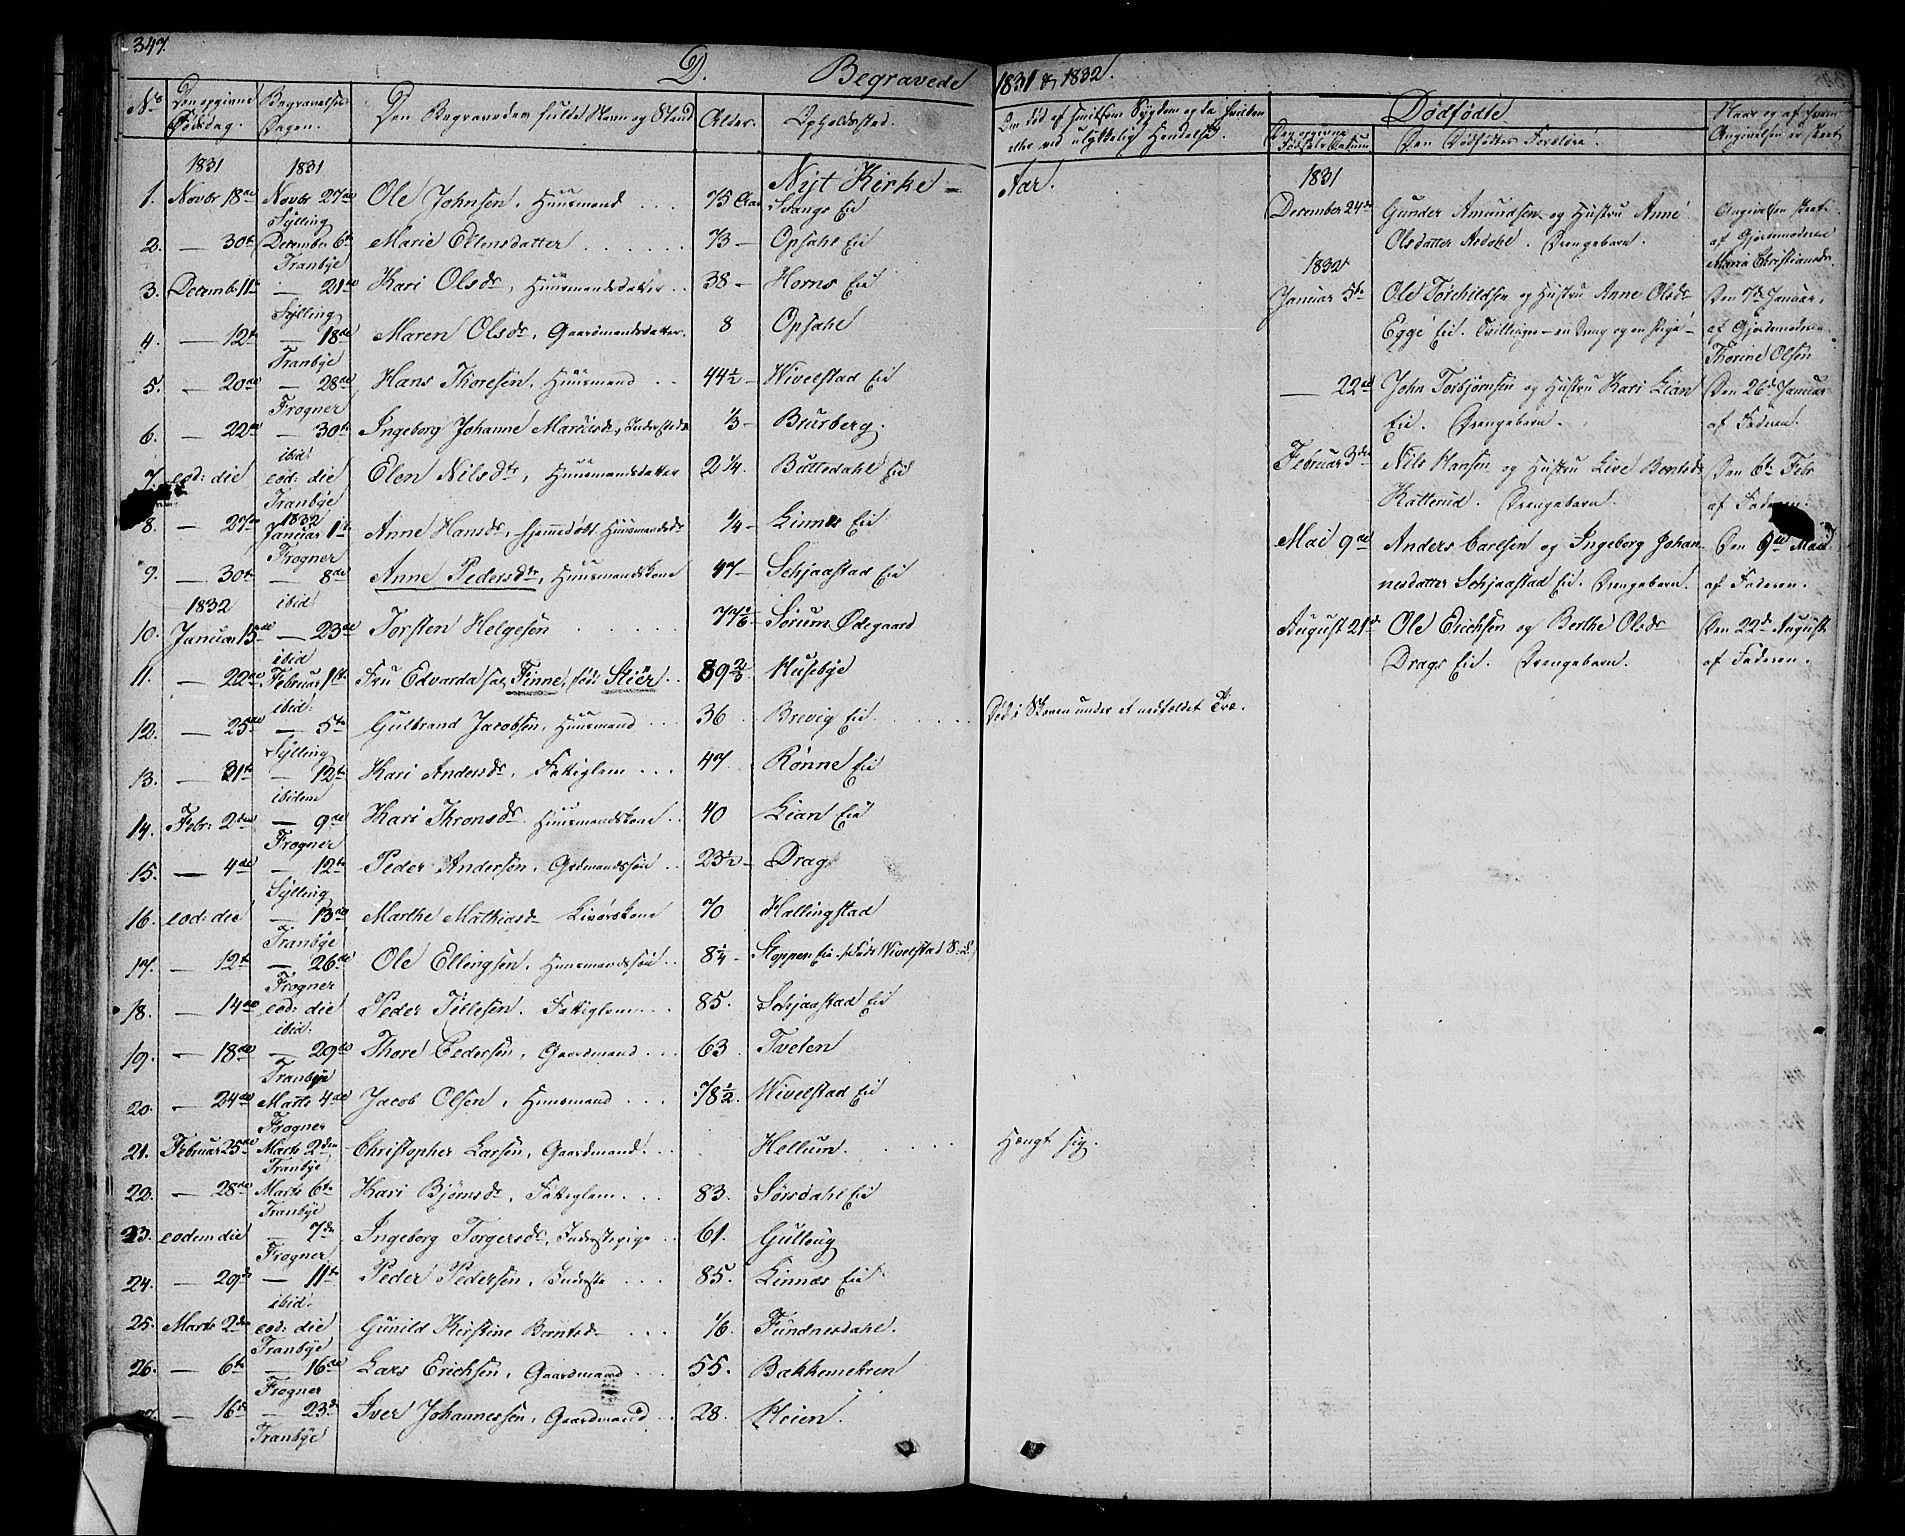 347.
D. Begravede 1831 & 1832.
No Den opgivne Dødsdag. Begravelses Dagen. Den Begravedes fulde Navn og Stand Alder. Opholdssted.
1831 1831 Nyt Kirke - Aar.
1. Novbr 18de Novbr 27de Ole Johnsen, Huusmand . . . 75 Aar Svangs Eie
Sylling
2. — 30te December 6te Marie Ellensdatter . . . . . . 73 — Opsahl Eie
Tranbye
3. Decembr 11te — 21de Kari Olsdr, Huusmandsdatter — 38 — Horns Eie
Sylling
4. — 12te — 18de Maren Olsdr, Gaardmandsdatter. 8 Opsahl
Tranbye
5. — 20de — 28de Hans Thoresen, Huusmand . . 44½ — Wivelstad Eie
Frogner
6. — 22de — 30te Ingeborg Johanne Mariisdr, 1/3 — Brurberg.
ibid:
7. eod: die eod: die Elen Nilsdtr, Huusmandsdatter 2 1/4. Bøttedahl Eie
Tranbye
1832
8. — 27de Januar 1te Anne Hansdr, hjemmedøbt Huusmandsdr 1/4 — Linnes Eie
Frogner
9. — 30te — 8de Anne Pedersdtr, Huusmandskone 47 — Schjaastad Eie
1832 ibid:
10. Januar 15de — 23de Torsten Helgesen . . . . . 77 1/6 — Sørum Ødegaard
ibid
11. — 22de Februar 1te Fru Edvarda sal. Finne, født Stiér . . 89 2/3 — Husebye
ibid:
12. — 25de — 5te Gulbrand Jacobsen, Huusmand . . . 36 Brevig Eie. . . . . . Død i Skoven under et nedfældet Træ.
Sylling
13. — 31te — 12te Kari Andersdr, Fattiglem . . . 47 Rønne Eie
ibidem
14. Febr: 2den — 9de Kari Thronsdr. Huusmandskone . . 40 Lian Eie
Frogner
15. — 4de — 12te Peder Andersen, Grdmandssøn . . 23½ — Drag
Sylling
16. eod: die — 13de Marthe Mathiasdr — Livørskone 70 Hallingstad
Tranbye
17. — 12te — 26de Ole Ellingsen, Huusmandssøn . . 8¼ — Stoppen Eie. /: Født Wivelstad
Frogner
18. — 14de eod: die Peder Tillesen. Fattiglem . . . 85. Schjaastad Eie
ibid:
19. — 18de — 29de Thore Pedersen, Gaardmand . . . 63. Tveten
Tranbye
20. — 24de Marts 4de Jacob Olsen, Huusmand . . . 78½. Wivelstad Eie
Frogner
21. Februar 25de Marts 2den Christopher Larsen, Gaardmand. . . . Hellum. . . . Hængt sig.
Tranbye
22. — 28de Marts 6te Kari Bjørnsdr, Fattiglem. . . . 83. Sørsdahl Eie
Tranbye
23. eodem die — 7de Ingeborg Torgersdr, Inderstepige . . 61. Gulloug
Frogner
24. — 29de — 11te Peder Pedersen, Inderste . . . 85. Linnes Eie.
ibid:
25. Marts 2den eod: die Gunild Kirstine Berntsdr . . . 1/6. Fundnesdahl.
Tranbye
26. — 6te — 16de Lars Erichsen, Gaardmand . . . 55. Bakkemehren
Frogner
— 16de — 23de Iver Johannessen, Gaardmand . . 28. Heien.
Tranbye
Om død af smitsom Sygdom og da hvilken
eller ved ulykkelig Hendelse.
Dødfødte
Den opgivne Fødsels Datum Den Dødfødtes Forældre. Naar og af hvem Angivelsen er skeet
1831
December 24de Gunder Amundsen og Hustru Anne Angivelsen skeet
Olsdatter Asdøhl. Drengebarn. af Gjordemoderen
1832 Maria Christiansdr.
Januar 5te Ole Torchildsen og Hustru Anne Olsdr Den 7de Januar,
Egge Eie. Tvillinger — en Dreng og en Pige — af Gjordemoderen
Thorine Olsen
— 22de John Torbjørnsen og Hustru Kari Lian Den 26de Januar
Eie. Drengebarn. af Faderen.
Februar 3die Nils Hansen og Hustru Live Berntsdr Den 6te Febr
Katterud. Drengebarn. af Faderen.
Mai 9de Anders Carlsen og Ingeborg Johan- Den 9de Mai
nesdatter Schjaastad Eie. Drengebarn. af Faderen.
August 21de Ole Erichsen og Berthe Olsdr Den 22de August
Drags Eie. Drengebarn. af Faderen.